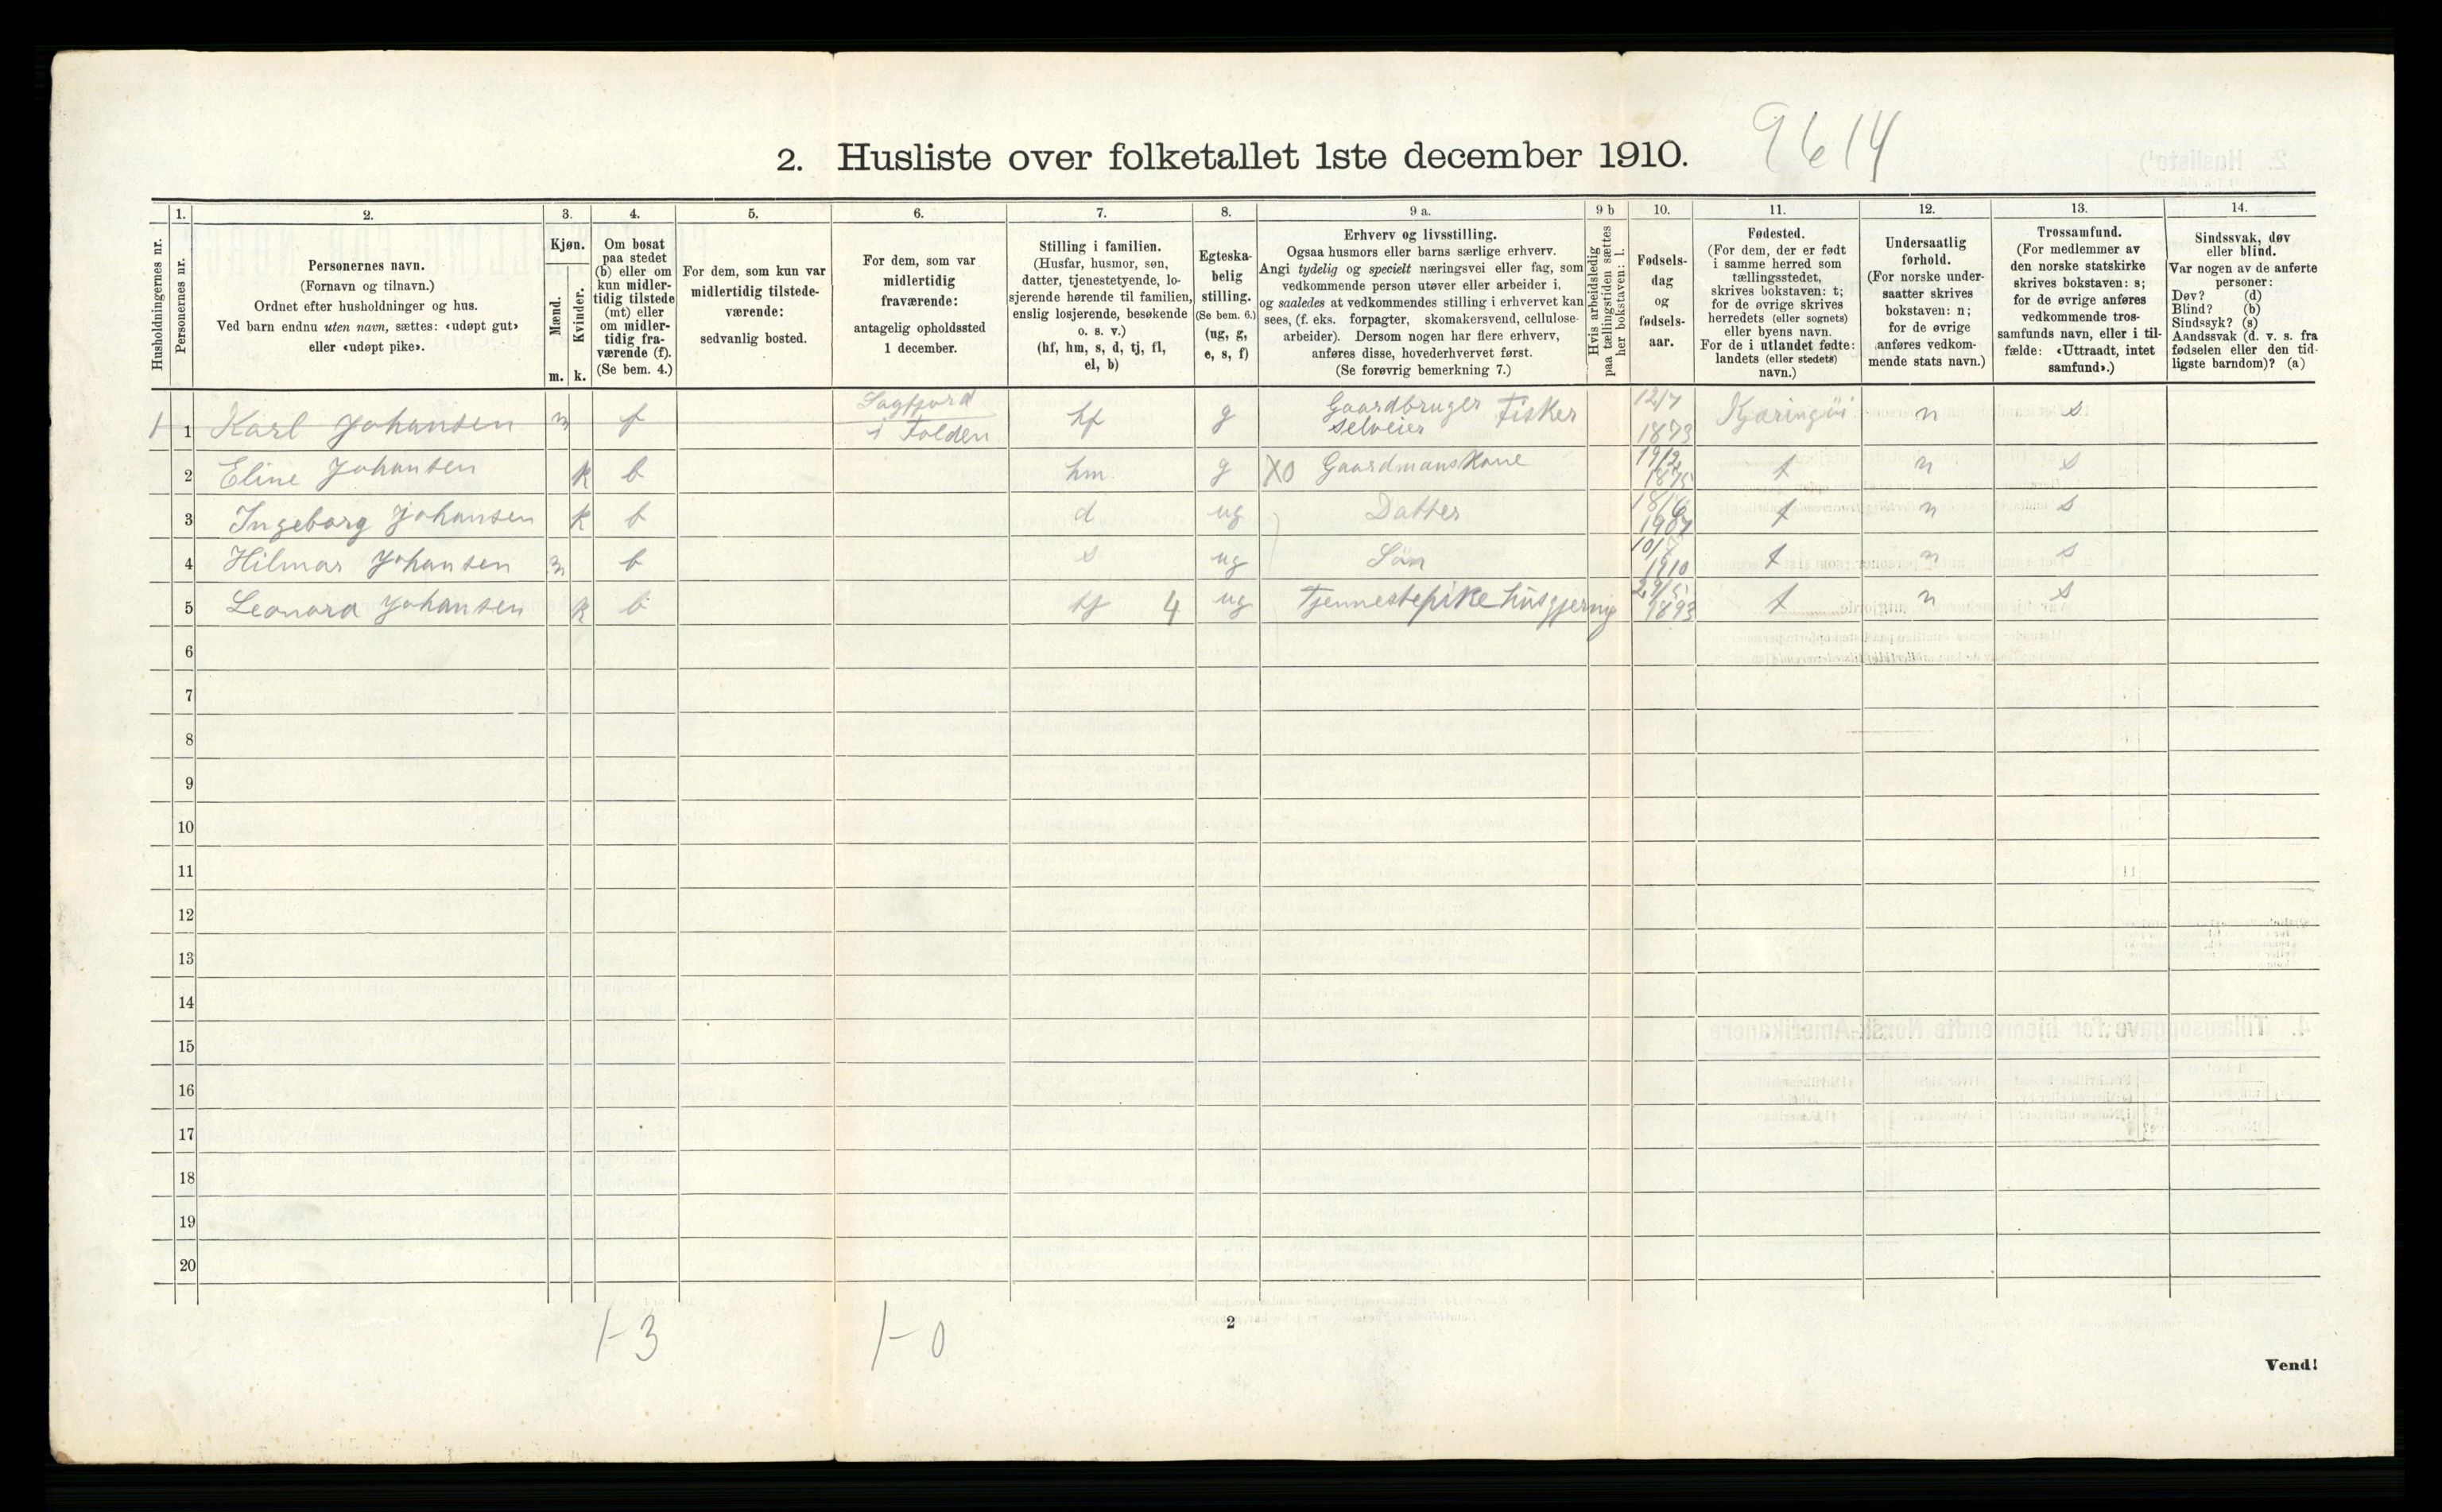 9614
2. Husliste over folketallet 1ste december 1910.
Husholdningernes nr.
1.
Personernes nr.
2.
Personernes navn.
(Fornavn og tilnavn.)
Ordnet efter husholdninger og hus.
Ved barn endnu uten navn, sættes: «udøpt gut»
eller «udøpt pike».
3.
Kjøn.
Mænd.
Kvinder.
m. k.
4.
Om bosat
paa stedet
(b) eller om
kun midler-
tidig tilstede
(mt) eller
om midler-
tidig fra-
værende (f).
(Se bem. 4.)
5.
For dem, som kun var
midlertidig tilstede-
værende:
sedvanlig bosted.
6.
For dem, som var
midlertidig
fraværende:
antagelig opholdssted
1 december.
7.
Stilling i familien.
(Husfar, husmor, søn,
datter, tjenestetyende, lo-
sjerende hørende til familien,
enslig losjerende, besøkende
o. s. v.)
(hf, hm, s, d, tj, fl,
el, b)
8.
Egteska-
belig
stilling.
(Se bem. 6.)
(ug, g,
e, s, f)
9 a.
Erhverv og livsstilling.
Ogsaa husmors eller barns særlige erhverv.
Angi tydelig og specielt næringsvei eller fag, som
vedkommende person utøver eller arbeider i,
og saaledes at vedkommendes stilling i erhvervet kan
sees, (f. eks. forpagter, skomakersvend, cellulose-
arbeider). Dersom nogen har flere erhverv,
anføres disse, hovederhvervet først.
(Se forøvrig bemerkning 7.)
9 b
Hvis arbeidsledig
paa tællingstiden sættes
her bokstaven: l.
10.
Fødsels-
dag
og
fødsels-
aar.
11.
Fødested.
(For dem, der er født
i samme herred som
tællingsstedet,
skrives bokstaven: t;
for de øvrige skrives
herredets (eller sognets)
eller byens navn.
For de i utlandet fødte:
landets (eller stedets)
navn.)
12.
Undersaatlig
forhold.
(For norske under-
saatter skrives
bokstaven: n;
for de øvrige
anføres vedkom-
mende stats navn.)
13.
Trossamfund.
(For medlemmer av
den norske statskirke
skrives bokstaven: s;
for de øvrige anføres
vedkommende tros-
samfunds navn, eller i til-
fælde: «Uttraadt, intet
samfund».)
14.
Sindssvak, døv
eller blind.
Var nogen av de anførte
personer:
Døv? (d)
Blind? (b)
Sindssyk? (s)
Aandssvak (d. v. s. fra
fødselen eller den tid-
ligste barndom)? (a)
1 1 Karl Johansen m f Sagfjord i Folden hf g Gaardbruger Selveier Fisker 12/7 1873 Kjæringöi n s
2 Eline Johansen k b hm g XO Gaardmanskone 19/2 1875 t n s
3 Ingeborg Johansen k b d ug Datter 18/6 t n s
4 Hilmar Johansen m b s ug Sön 1910 t n s
5 Leonora Johansen k b tj 4 ug Tjennestepike husgjerning 29/5 1893 t n s
6
7
8
9
10
11
12
13
14
15
16
17
18
19
20
1-3 1-0
2
Vend!